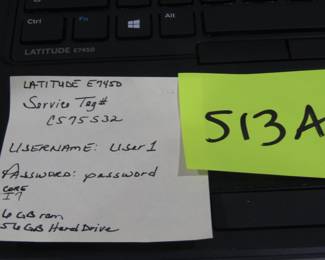 Ctrl
Fn
Alt
LATITUDE E7450
LATITUDE E7450
Service Tag#
C575S32
USERNAME: User1
PASSWORD: password
CORE
I7
6 GB ram
56 GB Hard Drive
513A